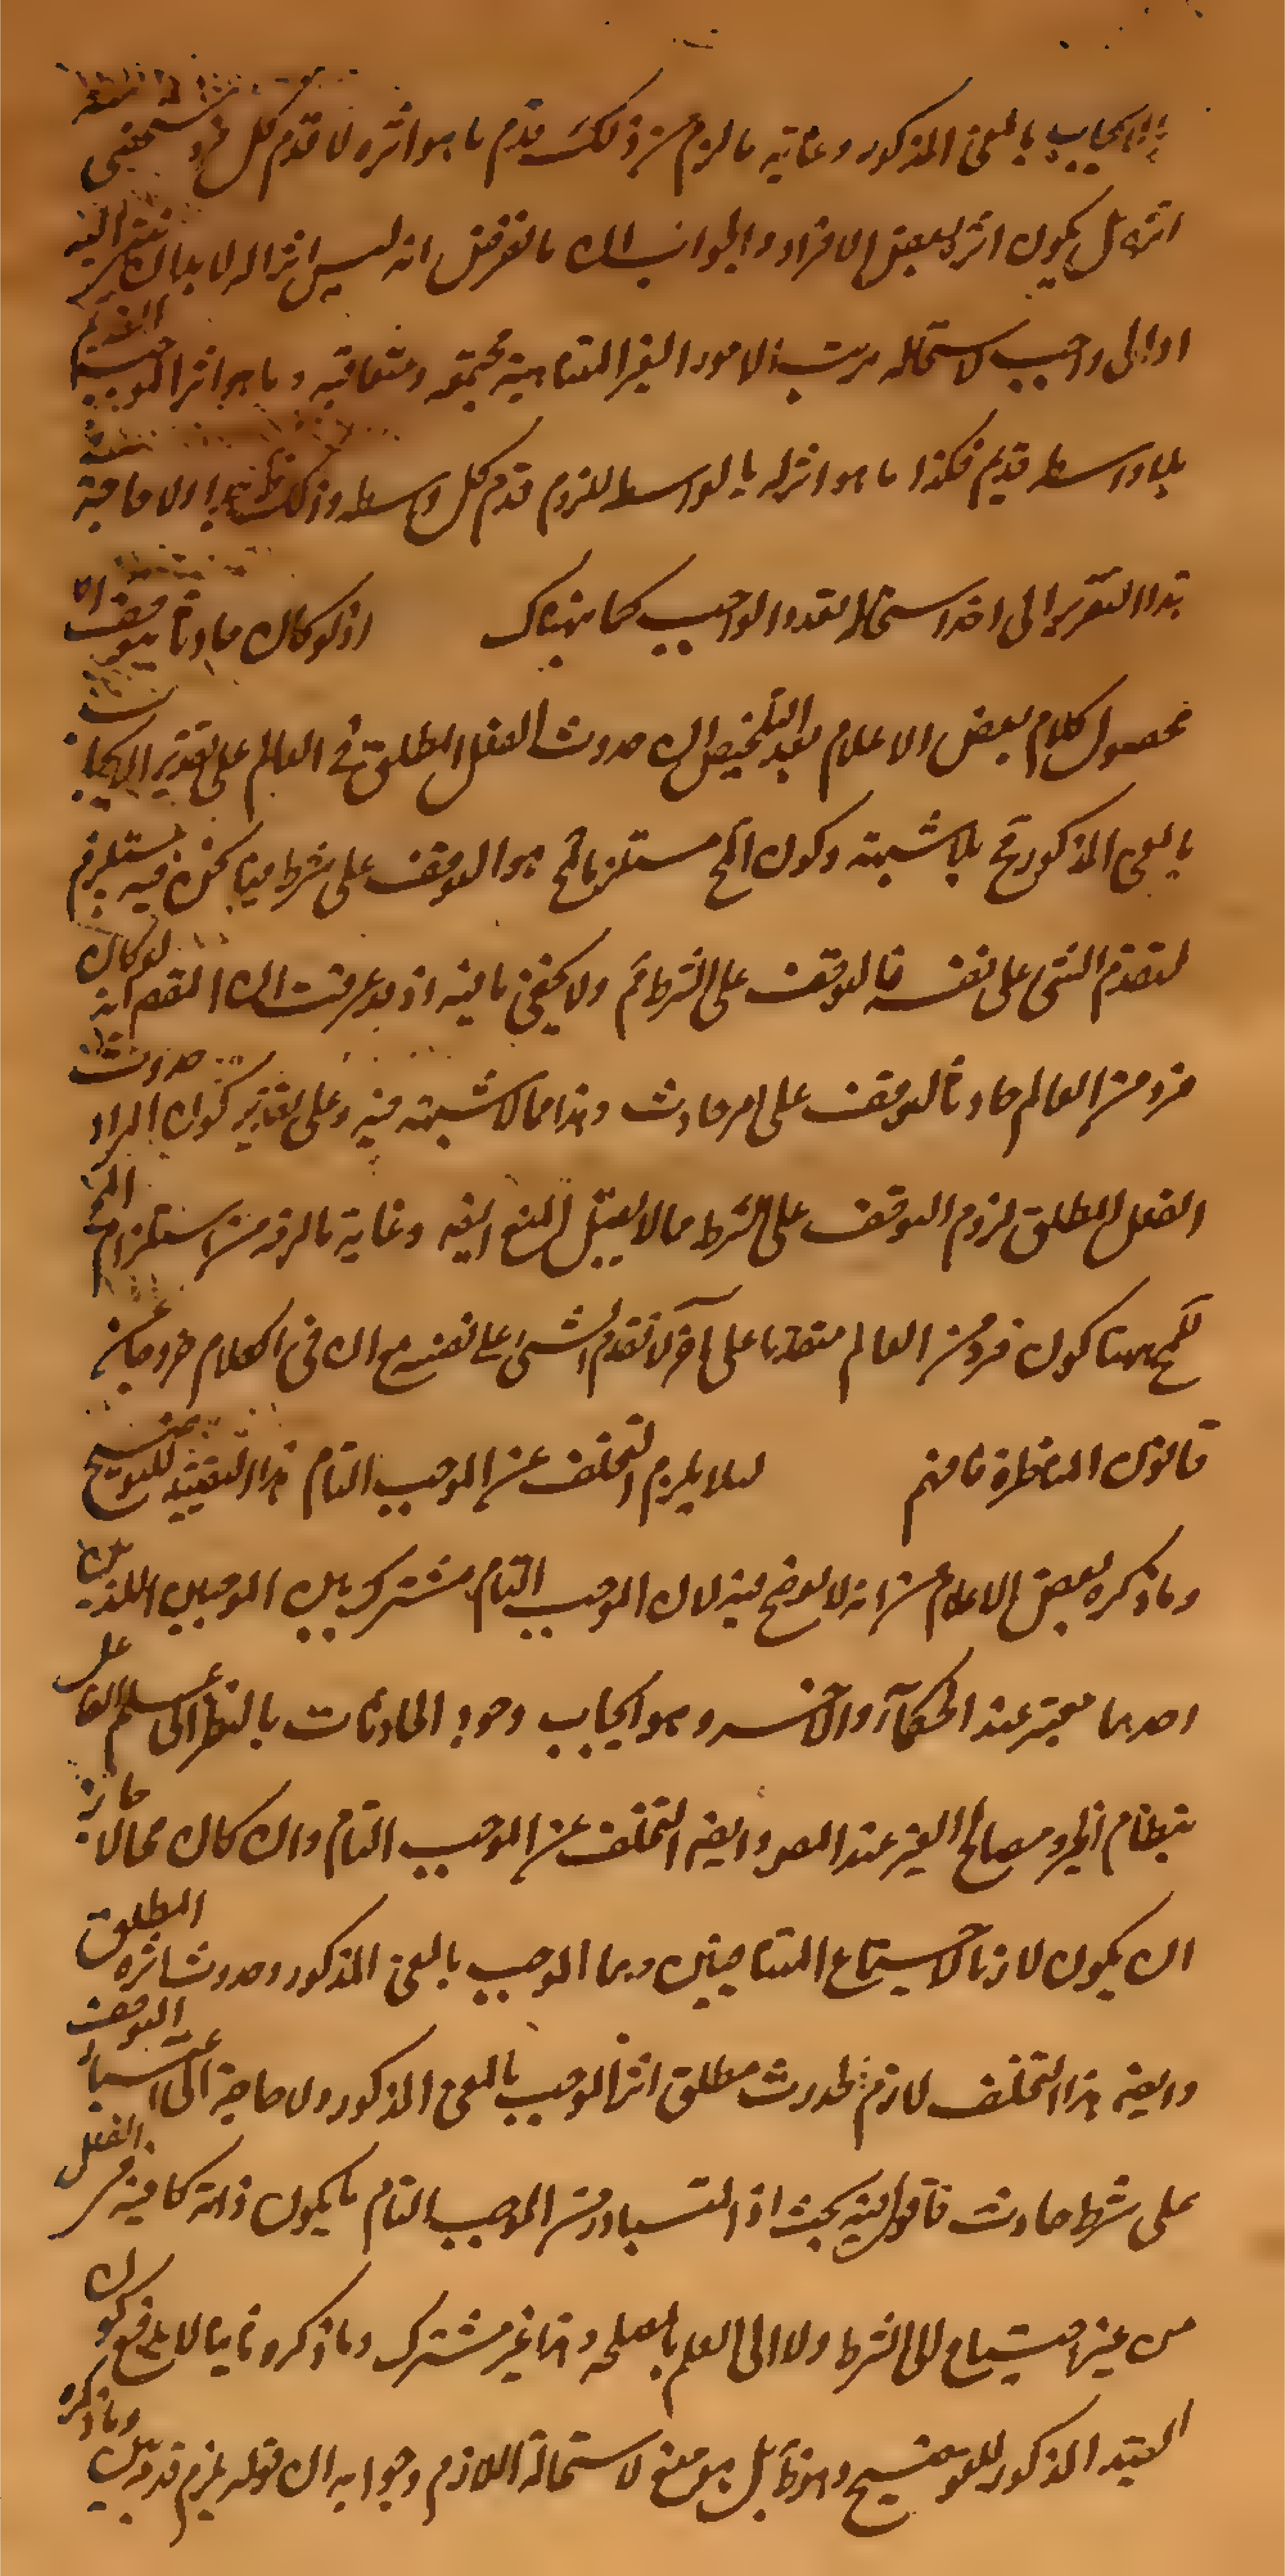 الايجاب بالمعنى المذكور وغاية ما لزم من ذلك قدم ما هو اثره لا قدم كل فرد
اثره بل يكون اثر لبعض الافراد والجواب ان ما نفرض انه ليس اثرا له لا بد ان ينتهى اليه
اولى واجب لاستحالة ترتب الامور الغير المتناهية مجتمعة ومتعاقبة وما هو اثر الموجب القديم
بلا واسطه قديم فكذا ما هو اثر له بالواسطه للزوم قدم كل واسطه وذلك ظ ولا حاجة
بهذا التقرير الى اخذ استحالة تعدد الواجب كما هناك اذ لو كان حادثا يتوقف اه
محصول كلام بعض الاعلام بعد التلخيص ان حدوث الفعل المطلق في العالم على تقدير الايجاب
بالمعنى المذكور مح بلا شبهة وكون المح مستلزما لمح هو التوقف على شرط فيما نحن فيه يستلزم
لتقدم الشئ على نفسه فالتوقف على الشرط ثم ولا يخفى ما فيه اذ قد عرفت ان المقصم انه لو كان
فرد من العالم حادثا لتوقف على امر حادث وهذا مما لا شبهة فيه وعلى تقدير كون المراد حدوث
الفعل المطلق لزوم التوقف على الشرط مما لا يقبل المنع ايضه وغاية ما لزم من استلزام المح
لمح ههنا كون فرد من العالم متقدما على آخر لا تقدم الشئ على نفسه مع ان فى الكلام خروجا عن
قانون المناظرة فافهم لئلا يلزم التخلف عن الموجب التام هذا التقييد للتوضيح
وما ذكره بعض الاعلام من انه لا توضيح فيه لان الموجب التام مشترك بين الموجبين اللذين
احدهما معتبر عند الحكمآء والآخر وهو ايجاب وجود الحادثات بالنظر الى علم الفاعل
بنظام الخير ومصالح الغير عند المصر وايضه التخلف عن الموجب التام وان كان محالا جاز
ان يكون لازما لاجتماع المتنافيين وهما الموجب بالمعنى المذكور وحدوث اثره المطلق
وايضه هذا التخلف لازم لحدوث مطلق اثر الموجب بالمعنى المذكور ولا حاجة الى اعتبار التوقف
على شرط حادث فاقول فيه بحث اذ المتبادر من الموجب التام ما يكون ذاته كافية فى الفعل
من غير احتياج الى الشرط ولا الى العلم بالمصلحه وهذا غير مشترك وما ذكره ثانيا لا يدفع كون
القيد المذكور للتوضيح وهو ظ بل هو منع لاستحالة اللازم وجوابه ان قوله يلزم قدمه وما ذكره